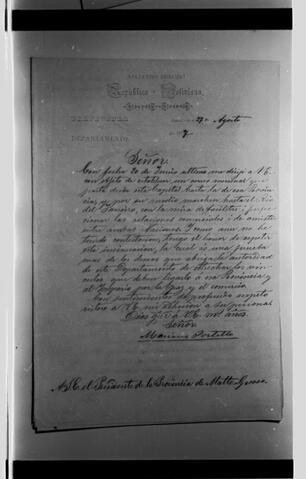 República Boliviana.
DEPARTAMENTO
27 de Agosto
Señor.
Con fecha 20 de Junio ultimo me dirijí a V.E.
con objeto de establecer un correo mensual que
parta desde esta Capital hasta la de esa Provin
cia, y por su medio marchen hasta el Rio
del Janeiro, con la mira de facilitar i
las relaciones comerciales i de amistad
entre ambas Naciones. Como aun no he
tenido contestacion, tengo el honor de repetir
esta insinuacion, la cual es una prueba
mas de los deseos que abriga la autoridad
de este Departamento de estrechar los vin
culos que deben ligarlo a esa Provincia y
al Imperio por la paz y el comercio.
Con sentimientos de profundo respeto
a V.E. mi adhesion a su persona.
Dios gûe a V.E. ms. años.
Señor
Mariano Portillo
A S.E. el Presidente de la Provincia de Matto-Grosso.